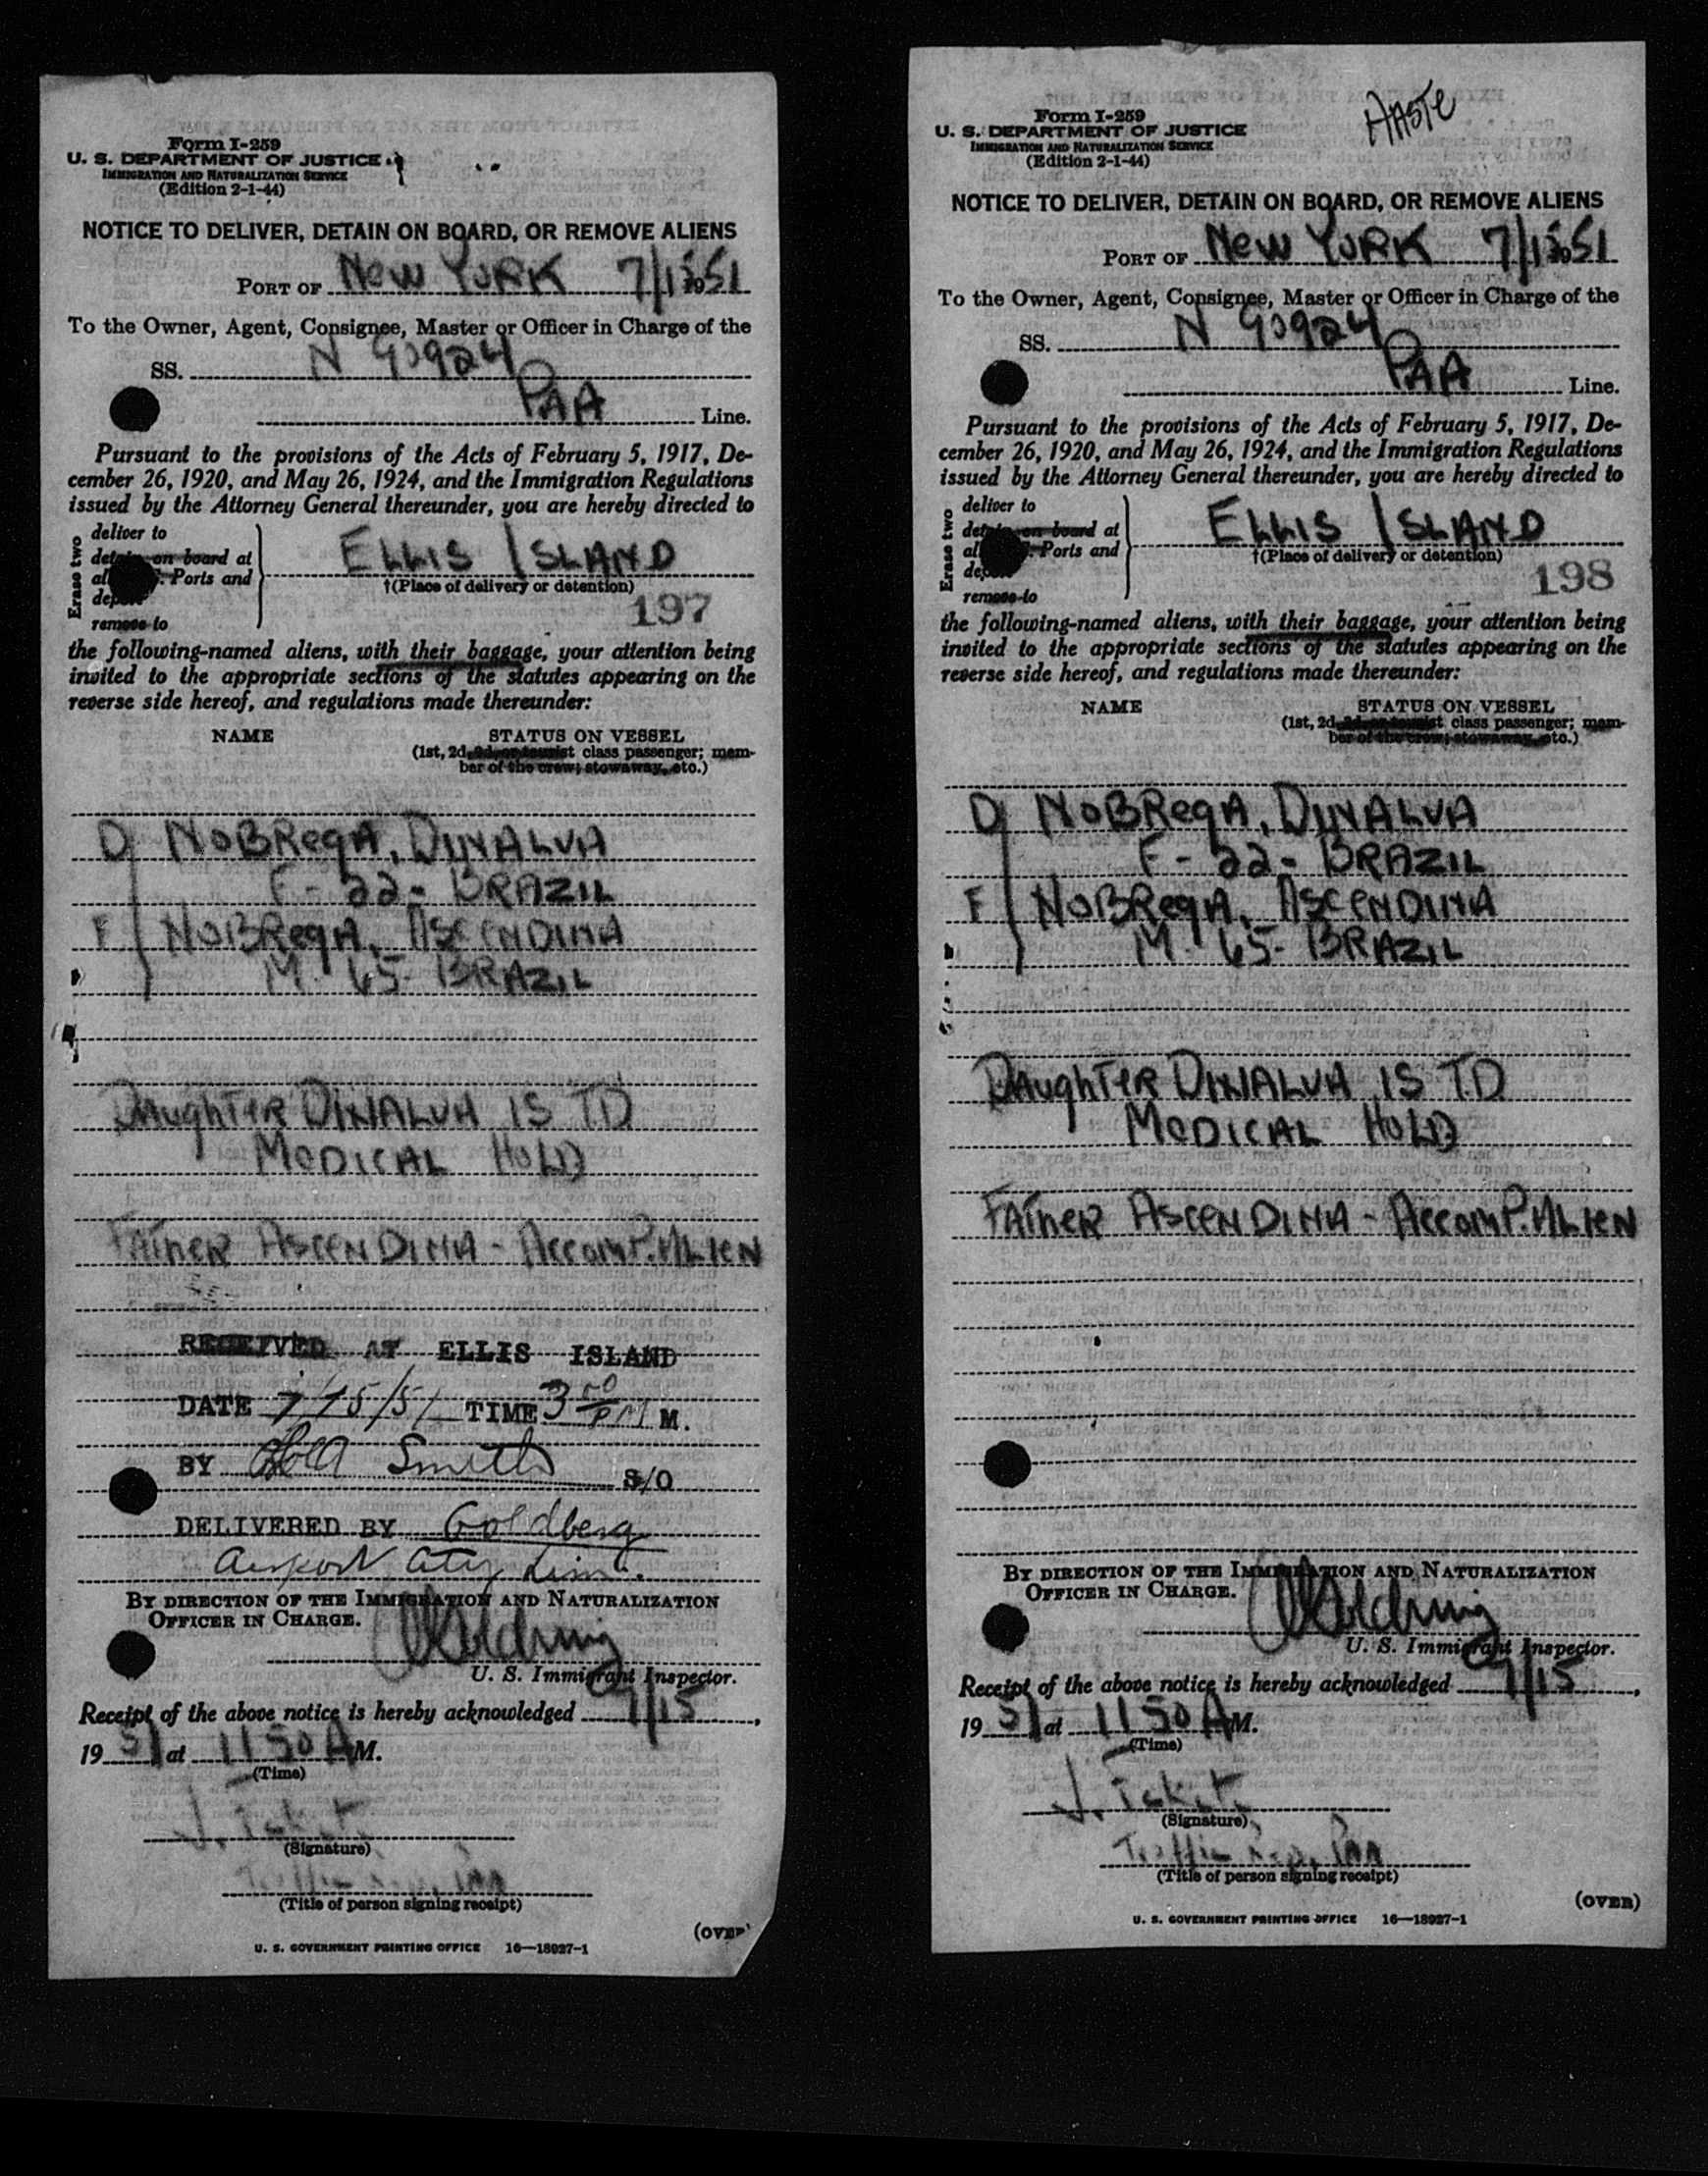 Form I-259
U. S. DEPARTMENT OF JUSTICE
IMMIGRATION AND NATURALIZATION SERVICE
(Edition 2-1-44)
NOTICE TO DELIVER, DETAIN ON BOARD, OR REMOVE ALIENS
PORT OF New YORK 7/15 1951
To the Owner, Agent, Consignee, Master or Officer in Charge of the
SS. N 90924
PAA Line.
Pursuant to the provisions of the Acts of February 5, 1917, De-
cember 26, 1920, and May 26, 1924, and the Immigration Regulations
issued by the Attorney General thereunder, you are hereby directed to
Erase two
deliver to
detain on board at
Ports and
remove to
ELLIS ISLAND
†(Place of delivery or detention)
197
the following-named aliens, with their baggage, your attention being
invited to the appropriate sections of the statutes appearing on the
reverse side hereof, and regulations made thereunder:
NAME STATUS ON VESSEL
(1st, 2d, 3d, or tourist class passenger; mem-
ber of the crew; stowaway, etc.)
D NOBRegA, DINALVA
F - 22 - BRAZIL
F NOBRegA, ASCENDINA
M - 65 - BRAZIL
DAughTeR DINALVA IS T.D.
MeDICAL HOLD
FATHeR ASCENDINA - AccomP. ALIEN
RECEIVED AT ELLIS ISLAND
DATE 7/15/51 TIME 3 PM M.
BY Smith S/O
DELIVERED BY Goldberg
Airport City Lim.
BY DIRECTION OF THE IMMIGRATION AND NATURALIZATION
OFFICER IN CHARGE.
U. S. Immigrant Inspector.
Receipt of the above notice is hereby acknowledged 7/15,
19 51 at 11 50 A M.
(Time)
(Signature)
(Title of person signing receipt)
(OVER)
U. S. GOVERNMENT PRINTING OFFICE 16—18927-1
HASTe
Form I-259
U. S. DEPARTMENT OF JUSTICE
IMMIGRATION AND NATURALIZATION SERVICE
(Edition 2-1-44)
NOTICE TO DELIVER, DETAIN ON BOARD, OR REMOVE ALIENS
PORT OF New YORK 7/15 1951
To the Owner, Agent, Consignee, Master or Officer in Charge of the
SS. N 90924
PAA Line.
Pursuant to the provisions of the Acts of February 5, 1917, De-
cember 26, 1920, and May 26, 1924, and the Immigration Regulations
issued by the Attorney General thereunder, you are hereby directed to
Erase two
deliver to
detain on board at
Ports and
remove to
ELLIS ISLAND
†(Place of delivery or detention)
198
the following-named aliens, with their baggage, your attention being
invited to the appropriate sections of the statutes appearing on the
reverse side hereof, and regulations made thereunder:
NAME STATUS ON VESSEL
(1st, 2d, 3d, or tourist class passenger; mem-
ber of the crew; stowaway, etc.)
D NOBRegA, DINALVA
F - 22 - BRAZIL
F NOBRegA, ASCENDINA
M - 65 - BRAZIL
DAughTeR DINALVA IS T.D.
MeDICAL HOLD
FATHeR ASCENDINA - AccomP. ALIEN
BY DIRECTION OF THE IMMIGRATION AND NATURALIZATION
OFFICER IN CHARGE.
U. S. Immigrant Inspector.
Receipt of the above notice is hereby acknowledged 7/15,
19 51 at 11 50 A M.
(Time)
(Signature)
(Title of person signing receipt)
(OVER)
U. S. GOVERNMENT PRINTING OFFICE 16—18927-1